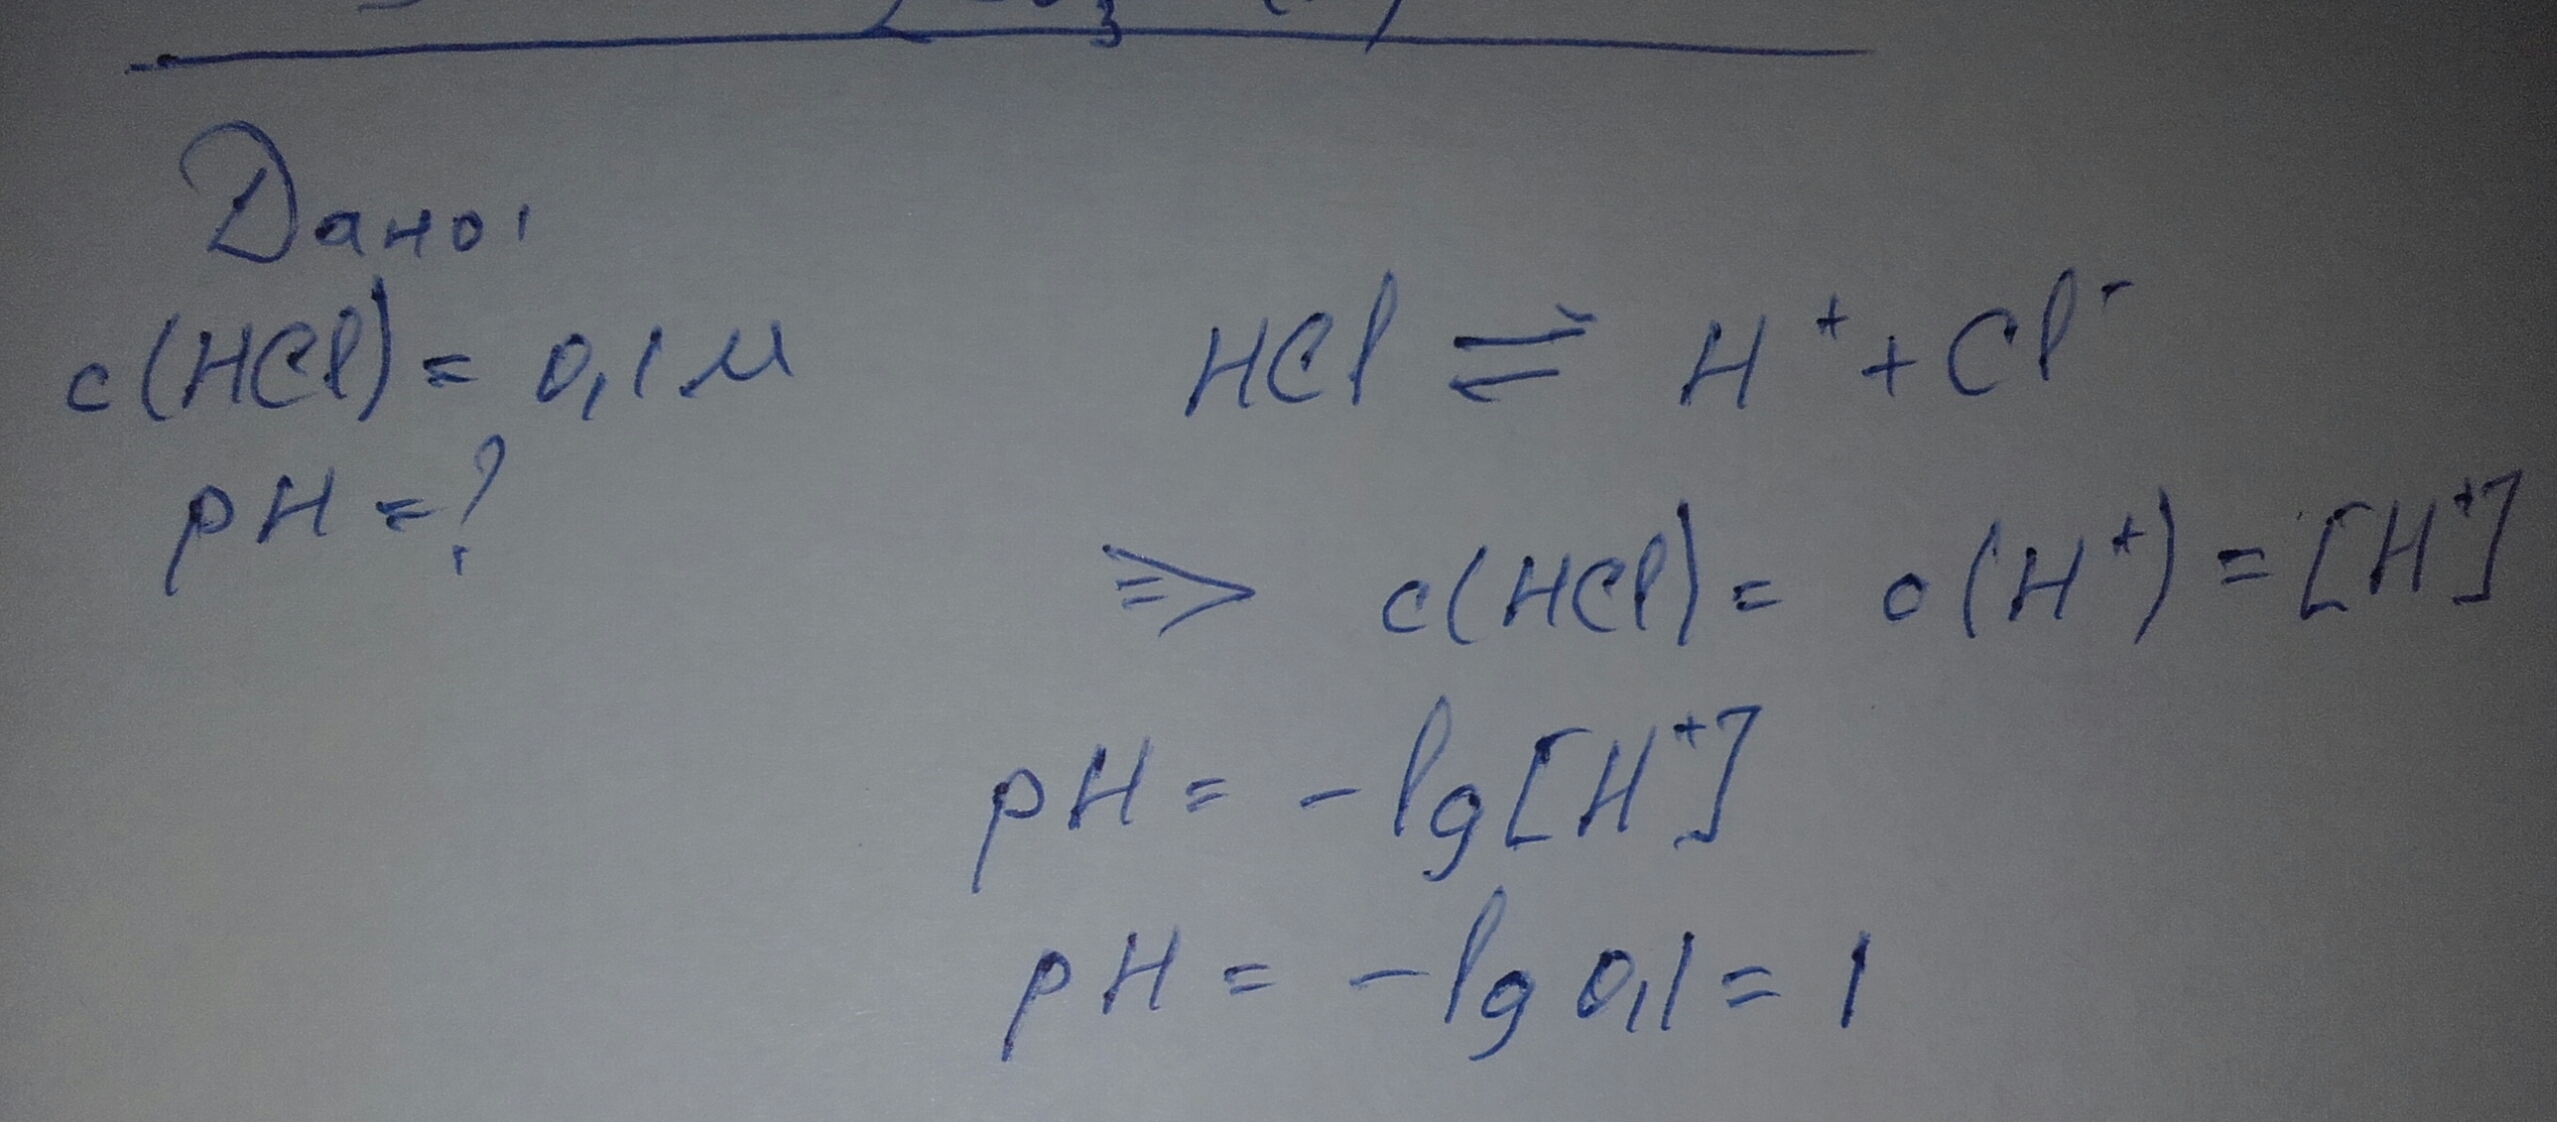 Дано:
c(HCl) = 0,1 м
pH = ?
HCl ⇌ H⁺ + Cl⁻
⇒ c(HCl) = c(H⁺) = [H⁺]
pH = -lg[H⁺]
pH = -lg 0,1 = 1